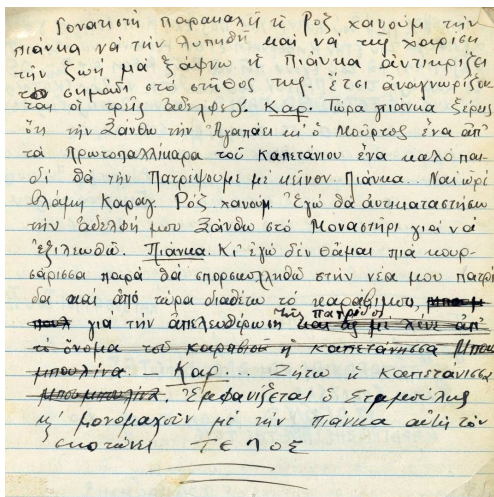 Γονατιστή παρακαλή ἡ Ρόζ χανούμ τὴν
πιάνκα νά τὴν λυπηθῆ καὶ νά τῆς χαρίση
τὴν ζωή μά ξάφνω ἡ Πιάνκα ἀντικρίζει
το σημάδι στό στῆθος της. ἔτσι ἀναγνωρίζον
ται οἱ τρεῖς ἀδελφές. Καρ. Τώρα πιάνκα ξέρεις
ὅτι τὴν Ξάνθω τὴν Ἀγαπάει κι ὁ Μούρτος ἕνα ἀπ'
τά Πρωτοπαλλίκαρα τοῦ Καπετάνιου ἕνα καλό παι-
δί θά τὴν Παντρέψουμε μέ κεῖνον Πιάνκα.. Ναί ὠρέ
βλάμη Καραγ. Ρόζ χανούμ Ἐγώ θά ἀντικαταστήσω
τὴν ἀδελφή μου Ξάνθω στό Μοναστήρι γιά νά
ἐξιλεωθῶ. Πιάνκα. Κι' ἐγώ δέν θἆμαι πιά κουρ-
σάρισσα παρά θά στὴν νέα μου πατρί
δα καί ἀπό τώρα διαθέτω τό καράβιμου,
γιά τὴν ἀπελευθέρωση τῆς πατρίδος καί ἄς μέ λένε ἀπ'
τό ὄνομα τοῦ καραβιοῦ ἡ καπετάνησσα Μπου
μπουλίνα. – Καρ... Ζήτω ἡ καπετάνισσα
Μπουμπουλίνα. Ἐμφανίζεται ὁ Σταμούλης
κι' μονομαχοῦν μέ τὴν πιάνκα αὐτή τόν
σκοτώνει ΤΕΛΟΣ